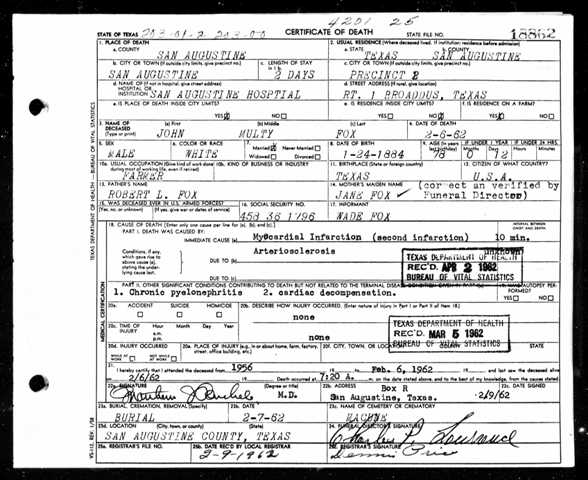 4201 25
STATE OF TEXAS 203-01-2 203-0-0 CERTIFICATE OF DEATH STATE FILE NO. 18862
1. PLACE OF DEATH 2. USUAL RESIDENCE (Where deceased lived. If institution: residence before admission)
a. COUNTY SAN AUGUSTINE a. STATE TEXAS b. COUNTY SAN AUGUSTINE
b. CITY OR TOWN (If outside city limits, give precinct no.) c. LENGTH OF STAY in 1 b. c. CITY OR TOWN (If outside city limits, give precinct no.)
SAN AUGUSTINE 2 DAYS PRECINCT 2
d. NAME OF (If not in hospital, give street address) HOSPITAL OR INSTITUTION SAN AUGUSTINE HOSPTIAL d. STREET ADDRESS (If rural, give location) RT. 1 BROADDUS, TEXAS
e. IS PLACE OF DEATH INSIDE CITY LIMITS? e. IS RESIDENCE INSIDE CITY LIMITS? f. IS RESIDENCE ON A FARM?
YES NO YES NO YES NO
3. NAME OF DECEASED (Type or print) (a) First (b) Middle (c) Last 4. DATE OF DEATH
JOHN MULTY FOX 2-6-62
5. SEX 6. COLOR OR RACE 7. Married Never Married Widowed Divorced 8. DATE OF BIRTH 9. AGE (In years last birthday) IF UNDER 1 YEAR IF UNDER 24 HRS.
MALE WHITE 1-24-1884 78 Months 0 Days 12 Hours Min.
10a. USUAL OCCUPATION (Give kind of work done) 10b. KIND OF BUSINESS OR INDUSTRY 11. BIRTHPLACE (State or foreign country) 12. CITIZEN OF WHAT COUNTRY?
FARMER TEXAS U.S.A.
13. FATHER'S NAME 14. MOTHER'S MAIDEN NAME (corect an verified by
ROBERT L. FOX JANE FOX Funeral Director)
15. WAS DECEASED EVER IN U.S. ARMED FORCES? 16. SOCIAL SECURITY NO. 17. INFORMANT
(Yes, no, or unknown) (If yes, give war or dates of service) 458 36 1796 WADE FOX
18. CAUSE OF DEATH [Enter only one cause per line for (a), (b), and (c).] INTERVAL BETWEEN ONSET AND DEATH
PART I. DEATH WAS CAUSED BY:
IMMEDIATE CAUSE (a) Myocardial Infarction (second infarction) 10 min.
Conditions, if any, which gave rise to above cause (a), stating the underlying cause last. DUE TO (b) Arteriosclerosis unknown
DUE TO (c)
TEXAS DEPARTMENT OF HEALTH
REC'D APR 2 1962
BUREAU OF VITAL STATISTICS
PART II. OTHER SIGNIFICANT CONDITIONS CONTRIBUTING TO DEATH BUT NOT RELATED TO THE TERMINAL DISEASE CONDITION GIVEN IN PART I(a) 19. WAS AUTOPSY PERFORMED?
1. Chronic pyelonephritis 2. cardiac decompensation. YES NO
20a. ACCIDENT SUICIDE HOMICIDE 20b. DESCRIBE HOW INJURY OCCURRED. (Enter nature of injury in Part I or Part II of item 18.)
none
20c. TIME OF INJURY Hour Month Day Year
none
TEXAS DEPARTMENT OF HEALTH
REC'D. MAR 5 1962
BUREAU OF VITAL STATISTICS
20d. INJURY OCCURRED WHILE AT WORK NOT WHILE AT WORK 20e. PLACE OF INJURY (e.g., in or about home, farm, factory, street, office building, etc.) 20f. CITY, TOWN, OR LOCATION COUNTY STATE
21. I hereby certify that I attended the deceased from 1956 to Feb. 6, 1962 and last saw the deceased alive
on 2/6/62 Death occurred at 7:20 A. m. on the date stated above, and to the best of my knowledge, from the causes stated.
22a. SIGNATURE (Degree or title) M.D. 22b. ADDRESS Box R San Augustine, Texas. 22c. DATE SIGNED 2/9/62
23a. BURIAL, CREMATION, REMOVAL (Specify) 23b. DATE 23c. NAME OF CEMETERY OR CREMATORY
BURIAL 2-7-62 MACUNE
23d. LOCATION (City, town, or county) (State) 24. FUNERAL DIRECTOR'S SIGNATURE
SAN AUGUSTINE COUNTY, TEXAS
25a. REGISTRAR'S FILE NO. 25b. DATE REC'D BY LOCAL REGISTRAR 25c. REGISTRAR'S SIGNATURE
2-9-1962
TEXAS DEPARTMENT OF HEALTH — BUREAU OF VITAL STATISTICS
MEDICAL CERTIFICATION